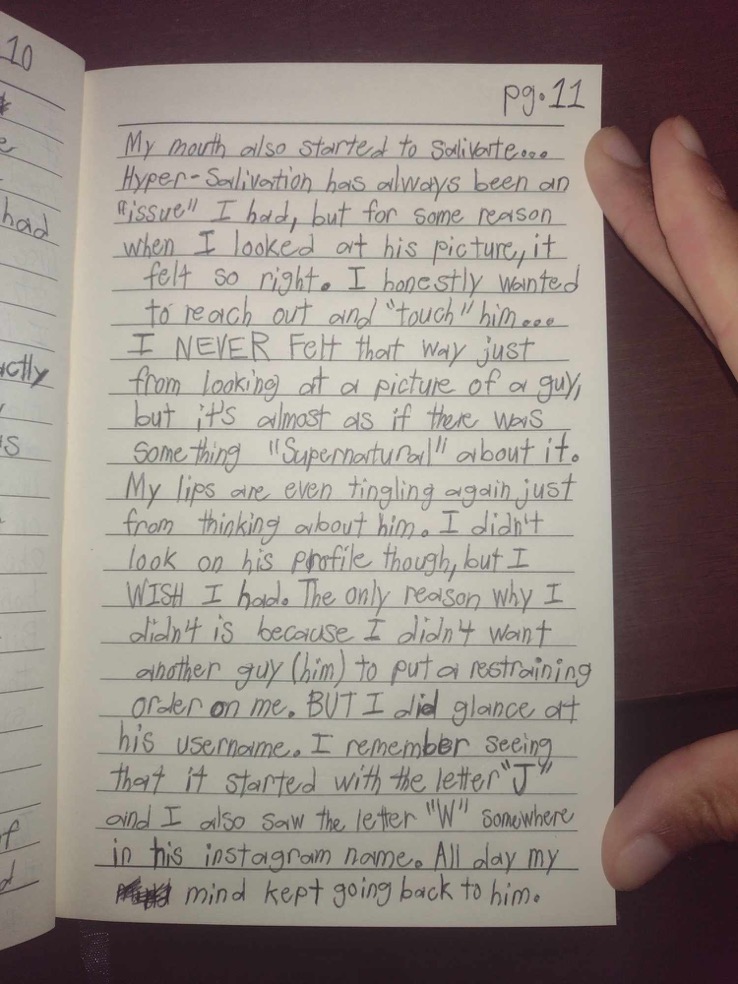 10
had
actly
pg.11
My mouth also started to salivate...
Hyper-Salivation has always been an
"issue" I had, but for some reason
when I looked at his picture, it
felt so right. I honestly wanted
to reach out and "touch" him...
I NEVER Felt that way just
from looking at a picture of a guy,
but it's almost as if there was
something "Supernatural" about it.
My lips are even tingling again just
from thinking about him. I didn't
look on his profile though, but I
WISH I had. The only reason why I
didn't is because I didn't want
another guy (him) to put a restraining
order on me. BUT I did glance at
his username. I remember seeing
that it started with the letter "J"
and I also saw the letter "W" somewhere
in his instagram name. All day my
mind kept going back to him.